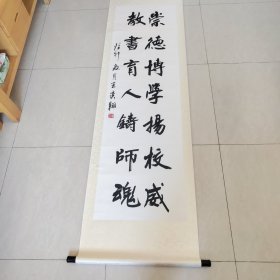 崇德博学揚校威
教書育人鑄師魂